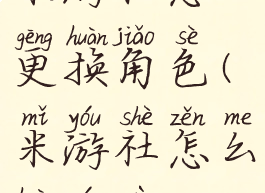 gēng huàn jiǎo sè
更换角色(
mǐ yóu shè zěn me
米游社怎么